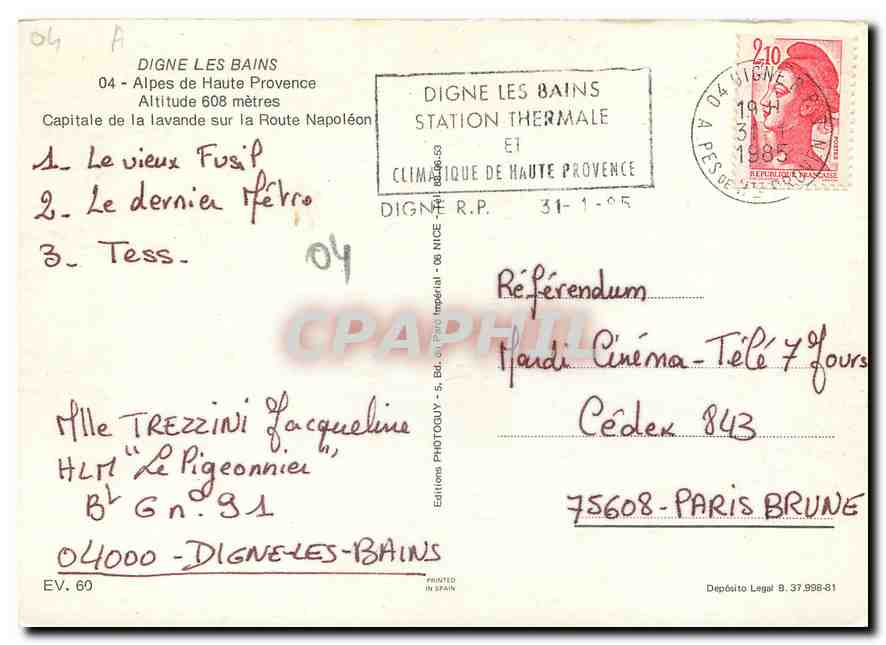 04 A
DIGNE LES BAINS
04 - Alpes de Haute Provence
Altitude 608 mètres
Capitale de la lavande sur la Route Napoléon
1_ Le vieux Fusil
2_ Le dernier Métro
3_ Tess_
04
Mlle TREZZINI Jacqueline
HLM "Le Pigeonnier"
Bt G n° 91
04000 - DIGNE-LES-BAINS
EV. 60
PRINTED
IN SPAIN
Editions PHOTOGUY - 5, Bd. du Parc Impérial - 06 NICE - Tél.
DIGNE LES BAINS
STATION THERMALE
ET
CLIMATIQUE DE HAUTE PROVENCE
DIGNE R.P. 31-1-85
2,10
04 DIGNE R.P.
19 H
31
1985
POSTES
REPUBLIQUE FRANÇAISE
Référendum
Mardi Cinéma - Télé 7 Jours
Cédex 843
75608 - PARIS BRUNE
Depósito Legal B. 37.998-81
CPAPHIL